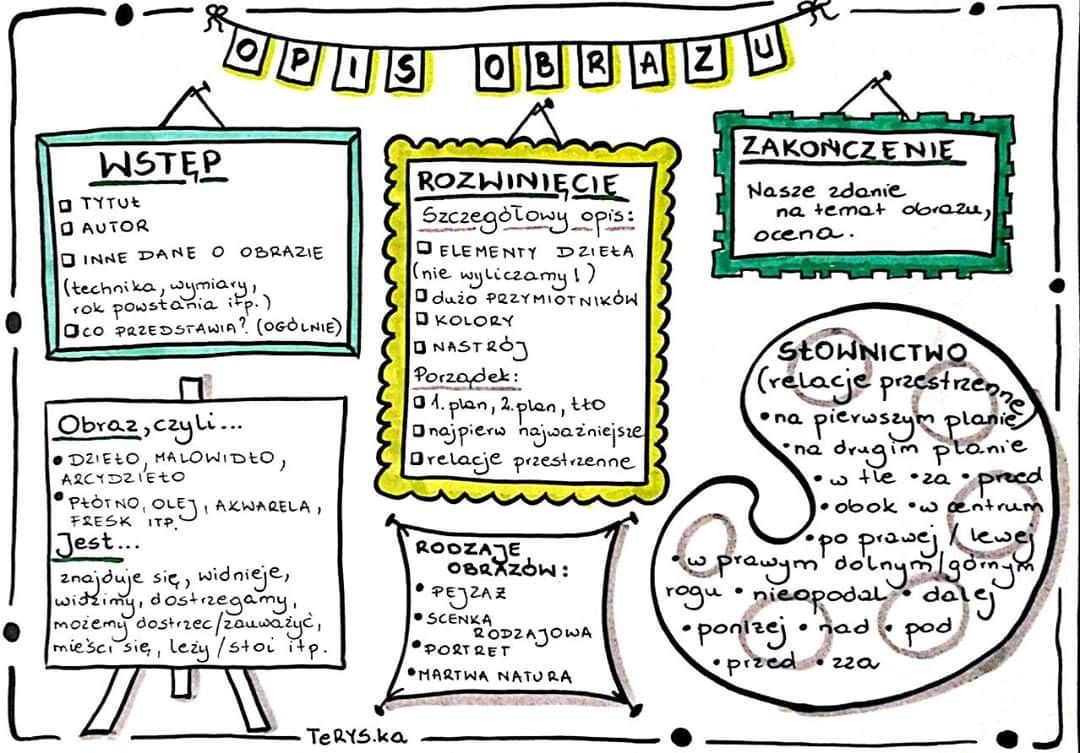 OPIS OBRAZU
WSTĘP
TYTUŁ
AUTOR
INNE DANE O OBRAZIE
(technika, wymiary,
rok powstania itp.)
CO PRZEDSTAWIA? (OGÓLNIE)
ROZWINIĘCIE
Szczegółowy opis:
ELEMENTY DZIEŁA
(nie wyliczamy!)
dużo PRZYMIOTNIKÓW
KOLORY
NASTRÓJ
Porządek:
1. plan, 2. plan, tło
najpierw najważniejsze
relacje przestrzenne
ZAKOŃCZENIE
Nasze zdanie
na temat obrazu,
ocena.
Obraz, czyli...
• DZIEŁO, MALOWIDŁO,
ARCYDZIEŁO
• PŁÓTNO, OLEJ, AKWARELA,
FRESK ITP.
Jest...
znajduje się, widnieje,
widzimy, dostrzegamy,
możemy dostrzec/zauważyć,
mieści się, leży/stoi itp.
RODZAJE
OBRAZÓW:
• PEJZAŻ
• SCENKA
RODZAJOWA
• PORTRET
• MARTWA NATURA
SŁOWNICTWO
(relacje przestrzenne)
• na pierwszym planie
• na drugim planie
• w tle • za • przed
• obok • w centrum
• po prawej / lewej
• w prawym dolnym/górnym
rogu • nieopodal • dalej
• poniżej • nad • pod
• przed • zza
TeRYS.ka